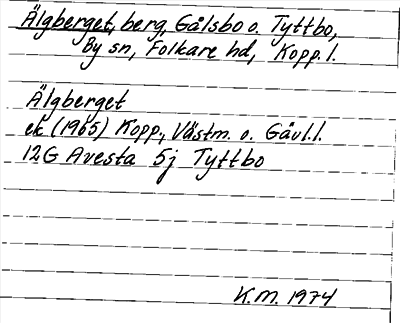 Älgberget, berg, Gålsbo o. Tyttbo,
By sn, Folkare hd, Kopp. l.
Älgberget
ek (1965) Kopp., Västm. o. Gävl.l.
12G Avesta 5j Tyttbo
K.M. 1974